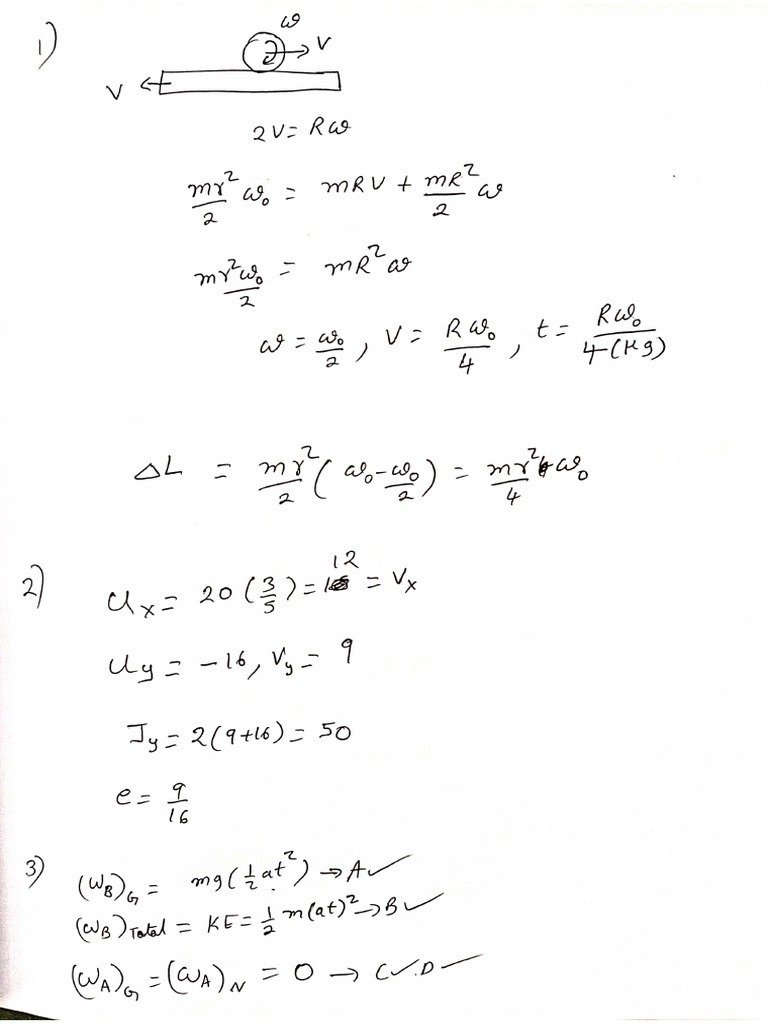 1)
ω
V
V
2V = Rω
mr²/2 ω₀ = mRV + mR²/2 ω
mr²ω₀/2 = mR²ω
ω = ω₀/2, V = Rω₀/4, t = Rω₀/4(μg)
ΔL = mr²/2 (ω₀ - ω₀/2) = mr²/4 ω₀
2) Ux = 20(3/5) = 12 = Vx
Uy = -16, Vy = 9
Jy = 2(9+16) = 50
e = 9/16
3) (WB)G = mg(½at²) → A✓
(WB)Total = KE = ½m(at)² → B✓
(WA)G = (WA)N = 0 → C✓.D✓